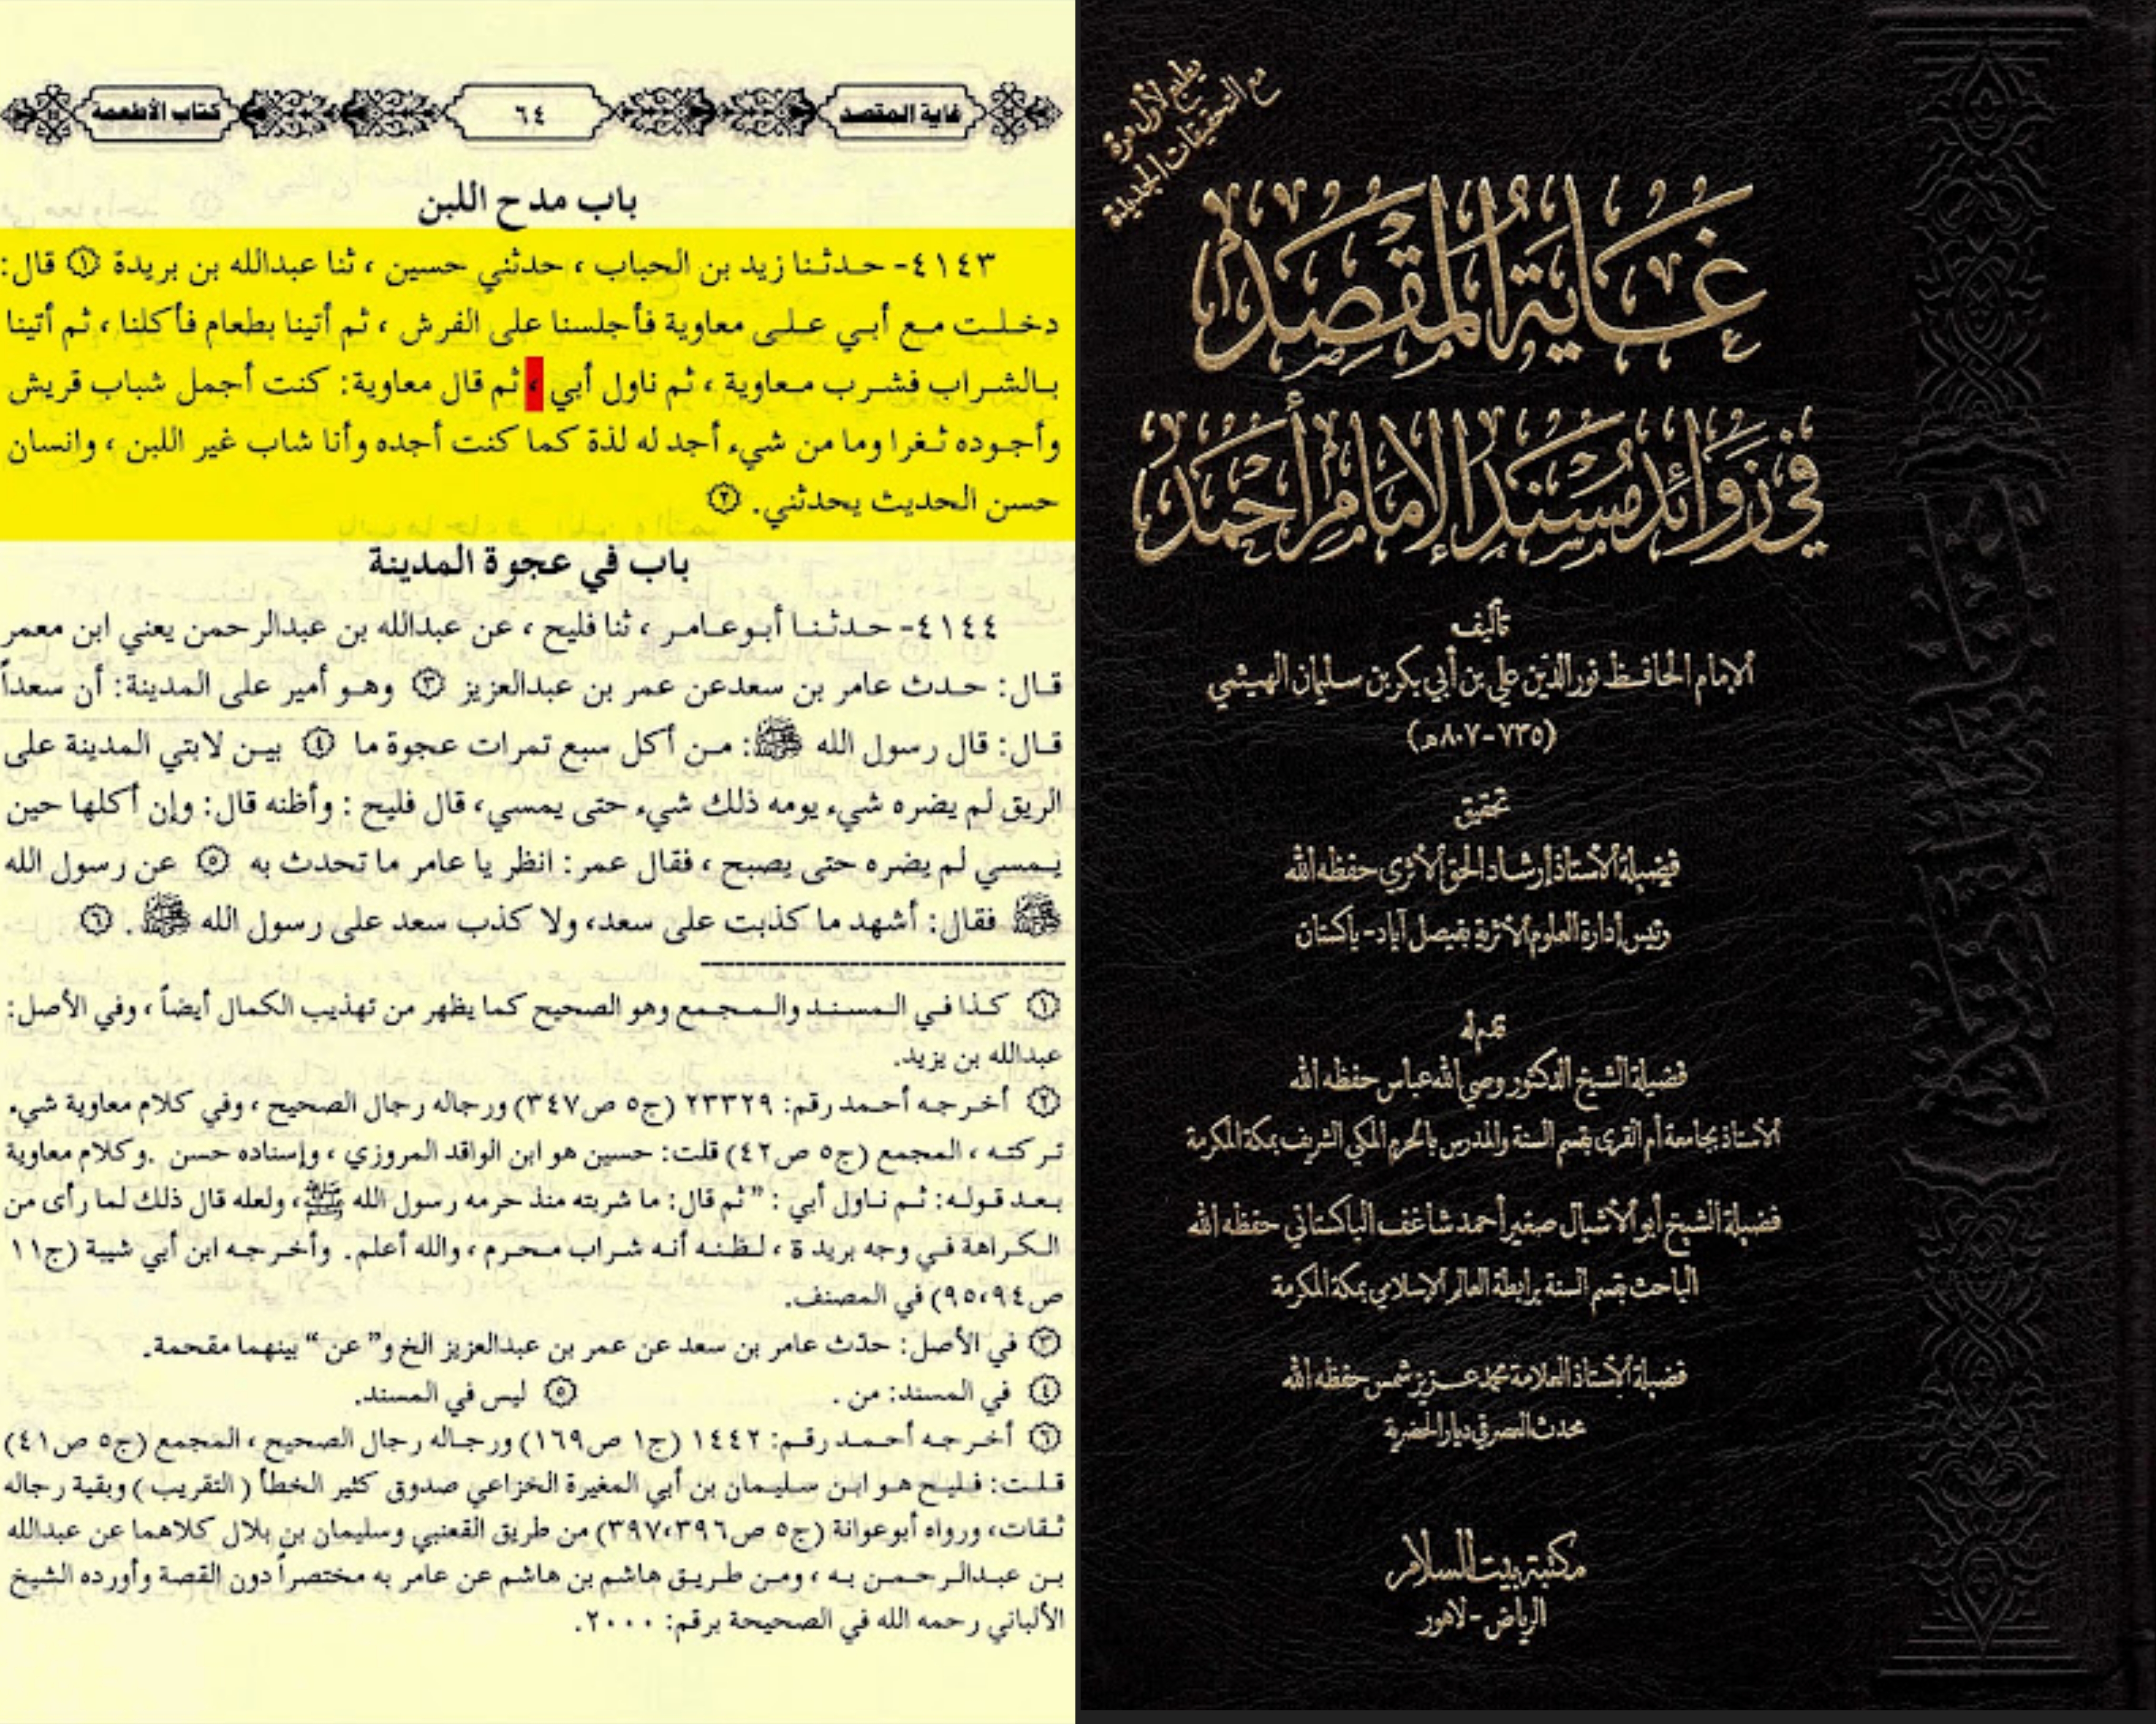 غاية المقصد
٦٤
كتاب الأطعمة
باب مدح اللبن
٤١٤٣- حدثنا زيد بن الحباب ، حدثني حسين ، ثنا عبدالله بن بريدة ١ قال:
دخلت مع أبي على معاوية فأجلسنا على الفرش ، ثم أتينا بطعام فأكلنا ، ثم أتينا
بالشراب فشرب معاوية ، ثم ناول أبي ، ثم قال معاوية: كنت أجمل شباب قريش
وأجوده ثغرا وما من شيء أجد له لذة كما كنت أجده وأنا شاب غير اللبن ، وانسان
حسن الحديث يحدثني. ٢
باب في عجوة المدينة
٤١٤٤- حدثنا أبوعامر ، ثنا فليح ، عن عبدالله بن عبدالرحمن يعني ابن معمر
قال: حدث عامر بن سعدعن عمر بن عبدالعزيز ٣ وهو أمير على المدينة: أن سعداً
قال: قال رسول الله ﷺ: من أكل سبع تمرات عجوة ما ٤ بين لابتي المدينة على
الريق لم يضره شيء يومه ذلك شيء حتى يمسي، قال فليح : وأظنه قال: وإن أكلها حين
يمسي لم يضره حتى يصبح ، فقال عمر: انظر يا عامر ما تحدث به ٥ عن رسول الله
ﷺ فقال: أشهد ما كذبت على سعد، ولا كذب سعد على رسول الله ﷺ . ٦
١ كذا في المسند والمجمع وهو الصحيح كما يظهر من تهذيب الكمال أيضاً ، وفي الأصل:
عبدالله بن يزيد.
٢ أخرجه أحمد رقم: ٢٣٣٢٩ (ج٥ ص٣٤٧) ورجاله رجال الصحيح ، وفي كلام معاوية شيء
تركته ، المجمع (ج٥ ص٤٢) قلت: حسين هو ابن الواقد المروزي ، وإسناده حسن .وكلام معاوية
بعد قوله: ثم ناول أبي : "ثم قال: ما شربته منذ حرمه رسول الله ﷺ، ولعله قال ذلك لما رأى من
الكراهة في وجه بريدة ، لظنه أنه شراب محرم ، والله أعلم. وأخرجه ابن أبي شيبة (ج١١
ص٩٤،٩٥) في المصنف.
٣ في الأصل: حدّث عامر بن سعد عن عمر بن عبدالعزيز الخ و"عن" بينهما مقحمة.
٤ في المسند: من . ٥ ليس في المسند.
٦ أخرجه أحمد رقم: ١٤٤٢ (ج١ ص١٦٩) ورجاله رجال الصحيح ، المجمع (ج٥ ص٤١)
قلت: فليح هو ابن سليمان بن أبي المغيرة الخزاعي صدوق كثير الخطأ (التقريب) وبقية رجاله
ثقات، ورواه أبوعوانة (ج٥ ص٣٩٦،٣٩٧) من طريق القعنبي وسليمان بن بلال كلاهما عن عبدالله
بن عبدالرحمن به ، ومن طريق هاشم بن هاشم عن عامر به مختصراً دون القصة وأورده الشيخ
الألباني رحمه الله في الصحيحة برقم: ٢٠٠٠.
يطبع لأول مرة
مع التحقيقات الجديدة
غاية المقصد
في زوائد مسند الإمام أحمد
تأليف
الإمام الحافظ نور الدين علي بن أبي بكر بن سليمان الهيثمي
(٧٣٥-٨٠٧هـ)
تحقيق
فضيلة الأستاذ إرشاد الحق الأثري حفظه الله
رئيس إدارة العلوم الأثرية بفيصل آباد - باكستان
قدم له
فضيلة الشيخ الدكتور وصي الله عباس حفظه الله
الأستاذ بجامعة أم القرى بقسم السنة والمدرس بالحرم المكي الشريف بمكة المكرمة
فضيلة الشيخ أبو الأشبال صغير أحمد شاغف الباكستاني حفظه الله
الباحث بقسم السنة برابطة العالم الإسلامي بمكة المكرمة
فضيلة الأستاذ العلامة محمد عزير شمس حفظه الله
محدث العصر في ديار الحضرية
مكتبة بيت السلام
الرياض - لاهور